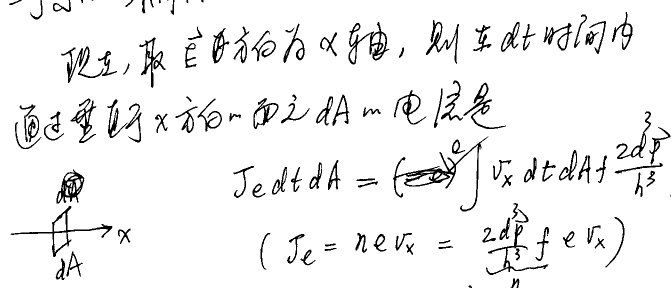 现在,取 E⃗ 的方向为 x 轴,则在 dt 时间内
通过垂直于 x 方向的面元 dA 的电流是
J_e dt dA = e ∫ v_x dt dA f 2d³p⃗/h³
x
dA
( J_e = n e v_x = 2d³p⃗/h³ f e v_x )
n